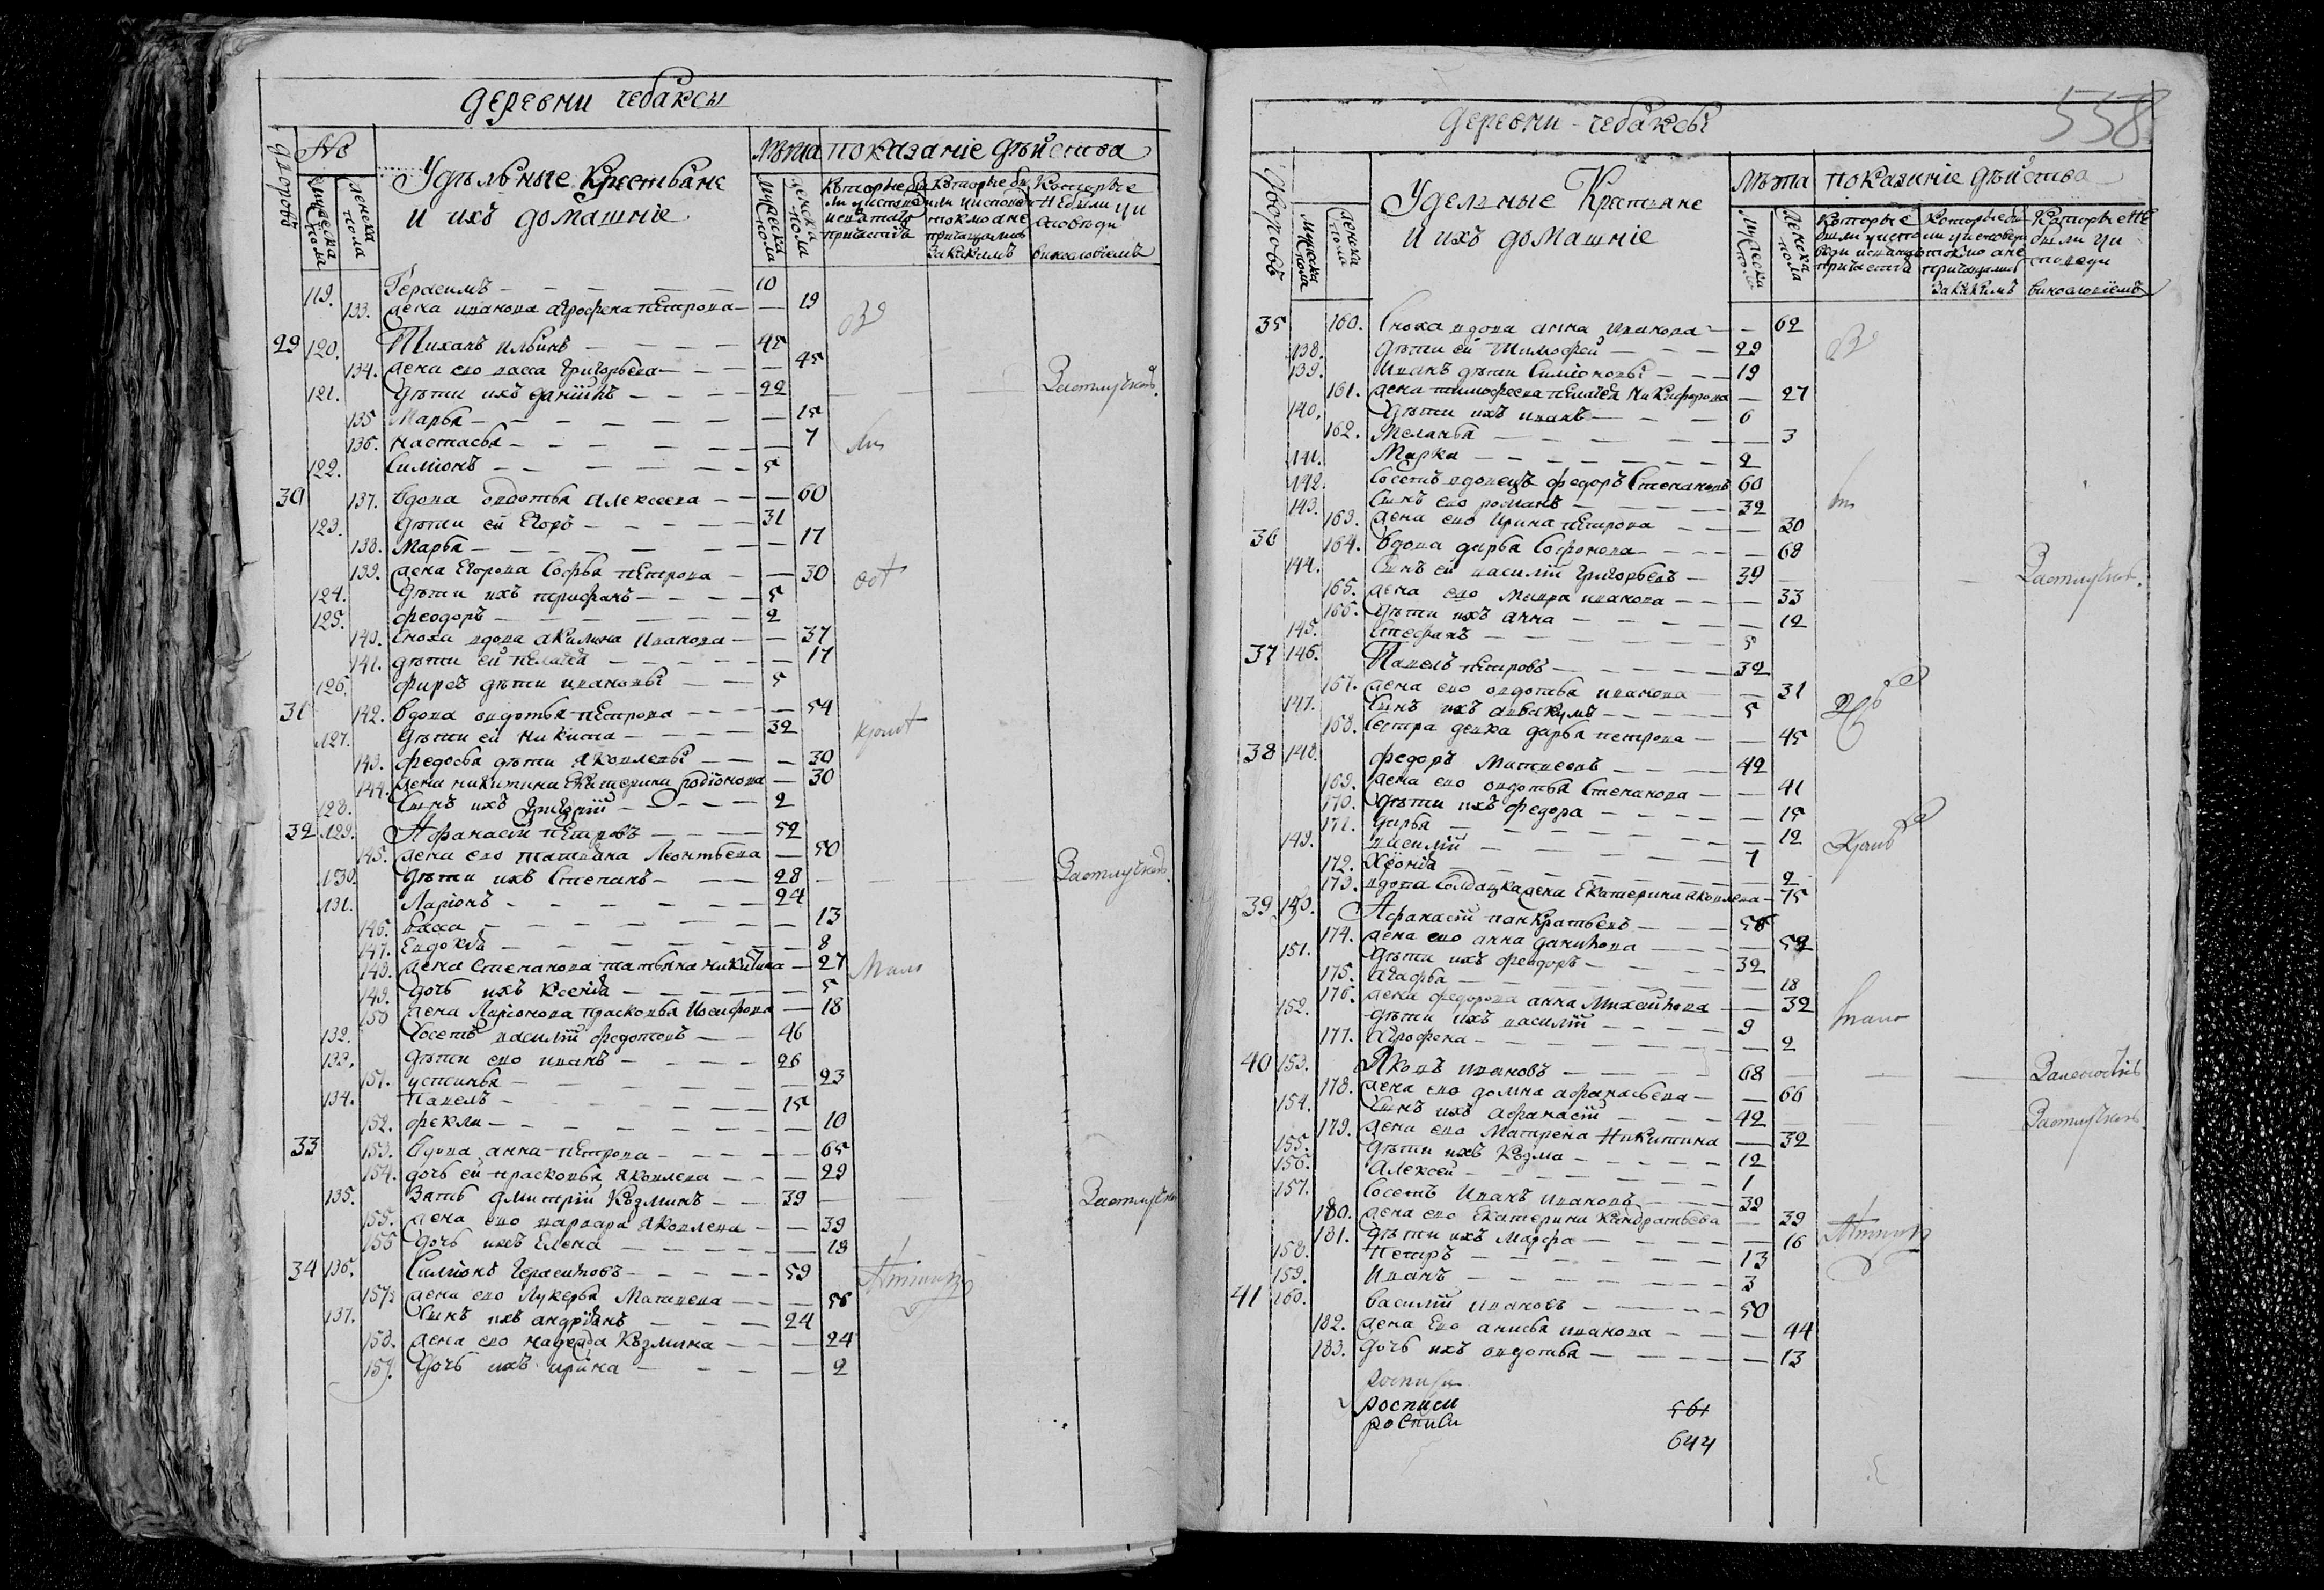 деревни чебаксы
дворовъ
№
мужеска пола
женска пола
Удѣльные Крестьяне
и ихъ домашніе
Лѣта
мужеска пола
женска пола
показаніе дѣйства
которые бы
ли уисповеди
и святаго
причастія
которые бы
ли уисповеди
токмо а не
причащались
за какимъ
Которые
не были уи
споведи
119. Герасимъ 10
133. жена иванова агрофена петрова 19
29 120. Тиханъ ильинъ 45
134. жена ево васса григорьева 45
121. дѣти ихъ данiилъ 22
135 Марья 15
136. настасья 7
122. Симіонъ 5
30 137. вдова овдотья алексеева 60
123. дѣти ей Егоръ 31
138. марья 17
139. жена Егорова софья петрова 30
124. дѣти ихъ 5
125. феодоръ 2
140. сноха вдова акилина иванова 37
141. дѣти ей пелагея 17
126. фирсъ дѣти ивановы 5
31 142. вдова овдотья петрова 54
127. дѣти ей никита 32
143. федосья дѣти яковлевы 30
144. жена никитина екатерина родіонова 30
128. сынъ ихъ григорій 2
32 129. Афанасій петровъ 52
145. жена ево татьяна леонтьева 50
130. дѣти ихъ степанъ 28
131. Ларіонъ 24
146. васса 13
147. Евдокія 8
148. жена степанова татьяна никитина 27
149. дочь ихъ ксенія 5
150 жена ларіонова прасковья иосифова 18
132. Сосетъ василій федотовъ 46
133. дѣти ево иванъ 26
151. устинья 23
134. павелъ 15
152. фекла 10
33 153. вдова анна петрова 65
154. дочь ей прасковья яковлева 29
135. зять дмитрій козминъ 39
155. жена ево варвара яковлева 39
155 дочь ихъ елена 18
34 136. Симіонъ герасимовъ 59
157. жена ево лукерья матвеева 58
137. сынъ ихъ андріянъ 24
158. жена ево надежда козмина 24
159. дочь ихъ ирина 2
558
деревни чебаксы
дворовъ
мужеска пола
женска пола
Удельные Крестьяне
и ихъ домашніе
Лѣта
мужеска пола
женска пола
показаніе дѣйства
которые
были уиспо
веди и святаго
причастія
Которые бы
ли уисповеди
токмо а не
причащались
за какимъ
Которые не
были уи
споведи
35 160. сноха вдова анна иванова 62
138. дѣти ей тимофей 29
139. иванъ дѣти симіоновы 19
161. жена тимофеева пелагея никифорова 27
140. дѣти ихъ иванъ 6
162. Меланья 3
141. Марка 2
142. Сосетъ вдовецъ федоръ степановъ 60
143. сынъ ево романъ 32
163. жена ево ирина петрова 30
36 164. вдова дарья софонова 68
144. сынъ ей василій григорьевъ 39
165. жена ево мавра иванова 33
166. дѣти ихъ анна 12
145. стефанъ 5
37 146. Павелъ петровъ 32
167. жена ево овдотья иванова 31
147. сынъ ихъ аввакумъ 5
168. сестра девка дарья петрова 45
38 148. федоръ матвеевъ 42
169. жена ево овдотья степанова 41
170. дѣти ихъ федора 15
171. дарья 12
149. василій 7
172. Хіонія 2
173. вдова солдацка жена екатерина яковлева 75
39 150. Афанасій панкратьевъ 58
174. жена ево анна данилова 52
151. дѣти ихъ феодоръ 32
175. агафья 18
176. жена федорова анна михайлова 32
152. дѣти ихъ василій 9
177. Агрофена 2
40 153. Яковъ ивановъ 68
178. жена ево домна афанасьева 66
154. сынъ ихъ афанасій 42
179. жена ево матрена никитина 32
155. дѣти ихъ козма 12
156. алексей 1
157. Сосетъ иванъ ивановъ 39
180. жена ево екатерина кандратьева 39
181. дѣти ихъ марфа 16
158. петръ 13
159. иванъ 3
41 160. василій ивановъ 50
182. жена ево анисья иванова 44
183. дочь ихъ овдотья 13
росписи
росписи 561
644